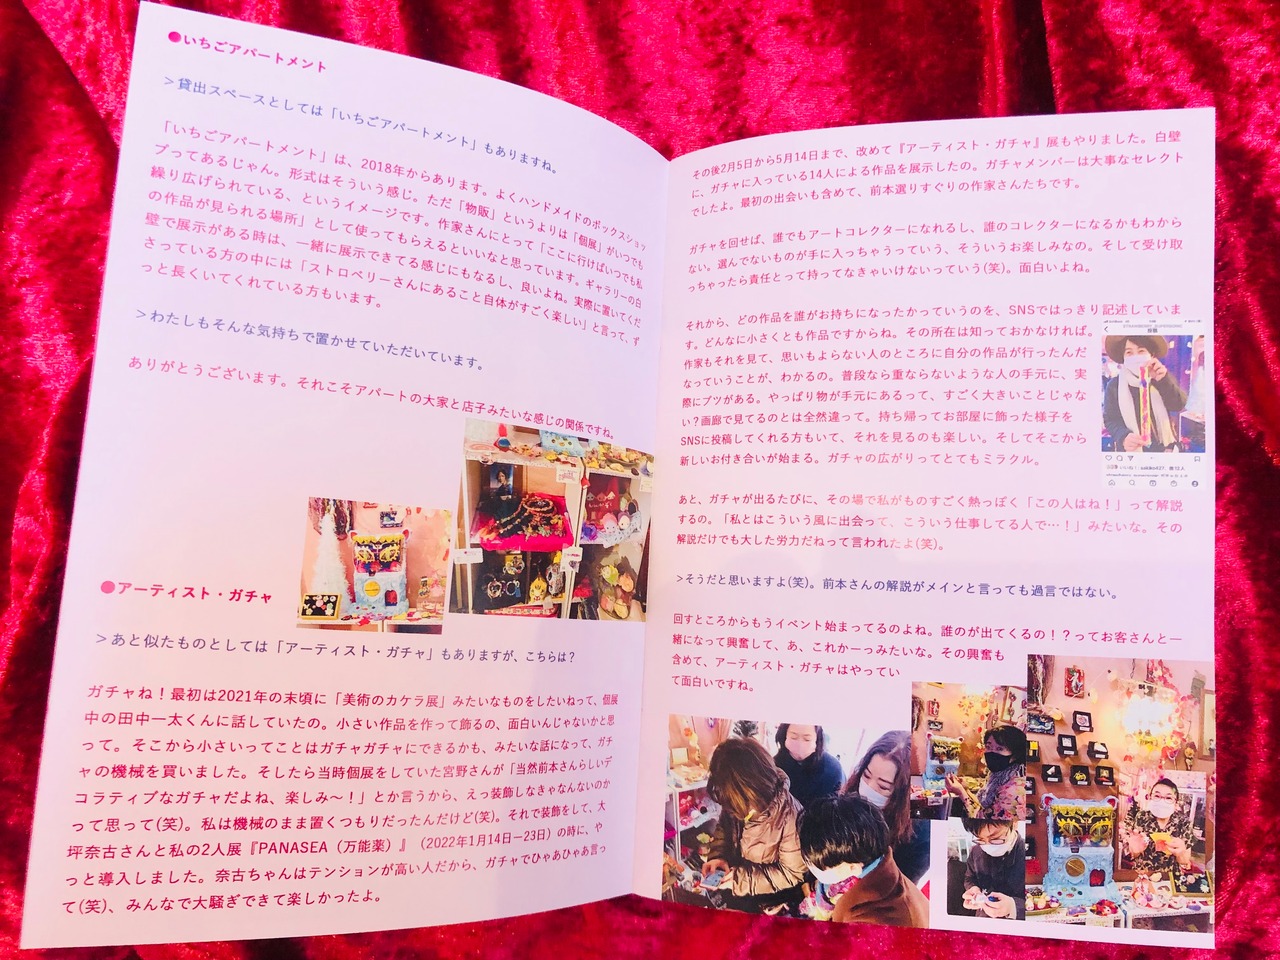 ●いちごアパートメント
＞貸出スペースとしては「いちごアパートメント」もありますね。
「いちごアパートメント」は、2018年からあります。よくハンドメイドのボックスショッ
プってあるじゃん。形式はそういう感じ。ただ「物販」というよりは「個展」がいつでも
繰り広げられている、というイメージです。作家さんにとって「ここに行けばいつでも私
の作品が見られる場所」として使ってもらえるといいなと思っています。ギャラリーの白
壁で展示がある時は、一緒に展示できてる感じにもなるし、良いよね。実際に置いてくだ
さっている方の中には「ストロベリーさんにあること自体がすごく楽しい」と言って、ず
っと長くいてくれている方もいます。
＞わたしもそんな気持ちで置かせていただいています。
ありがとうございます。それこそアパートの大家と店子みたいな感じの関係ですね。
●アーティスト・ガチャ
＞あと似たものとしては「アーティスト・ガチャ」もありますが、こちらは？
ガチャね！最初は2021年の末頃に「美術のカケラ展」みたいなものをしたいねって、個展
中の田中一太くんに話していたの。小さい作品を作って飾るの、面白いんじゃないかと思
って。そこから小さいってことはガチャガチャにできるかも、みたいな話になって、ガチ
ャの機械を買いました。そしたら当時個展をしていた宮野さんが「当然前本さんらしいデ
コラティブなガチャだよね、楽しみ〜！」とか言うから、えっ装飾しなきゃなんないのか
って思って(笑)。私は機械のまま置くつもりだったんだけど(笑)。それで装飾をして、大
坪奈古さんと私の2人展『PANASEA（万能薬）』（2022年1月14日ー23日）の時に、や
っと導入しました。奈古ちゃんはテンションが高い人だから、ガチャでひゃあひゃあ言っ
て(笑)、みんなで大騒ぎできて楽しかったよ。
その後2月5日から5月14日まで、改めて『アーティスト・ガチャ』展もやりました。白壁
に、ガチャに入っている14人による作品を展示したの。ガチャメンバーは大事なセレクト
でしたよ。最初の出会いも含めて、前本選りすぐりの作家さんたちです。
ガチャを回せば、誰でもアートコレクターになれるし、誰のコレクターになるかもわから
ない。選んでないものが手に入っちゃうっていう、そういうお楽しみなの。そして受け取
っちゃったら責任とって持ってなきゃいけないっていう(笑)。面白いよね。
それから、どの作品を誰がお持ちになったかっていうのを、SNSではっきり記述していま
す。どんなに小さくとも作品ですからね。その所在は知っておかなければ。
作家もそれを見て、思いもよらない人のところに自分の作品が行ったんだ
なっていうことが、わかるの。普段なら重ならないような人の手元に、実
際にブツがある。やっぱり物が手元にあるって、すごく大きいことじゃな
い？画廊で見てるのとは全然違って。持ち帰ってお部屋に飾った様子を
SNSに投稿してくれる方もいて、それを見るのも楽しい。そしてそこから
新しいお付き合いが始まる。ガチャの広がりってとてもミラクル。
あと、ガチャが出るたびに、その場で私がものすごく熱っぽく「この人はね！」って解説
するの。「私とはこういう風に出会って、こういう仕事してる人で…！」みたいな。その
解説だけでも大した労力だねって言われたよ(笑)。
>そうだと思いますよ(笑)。前本さんの解説がメインと言っても過言ではない。
回すところからもうイベント始まってるのよね。誰のが出てくるの！？ってお客さんと一
緒になって興奮して、あ、これかーっみたいな。その興奮も
含めて、アーティスト・ガチャはやってい
て面白いですね。